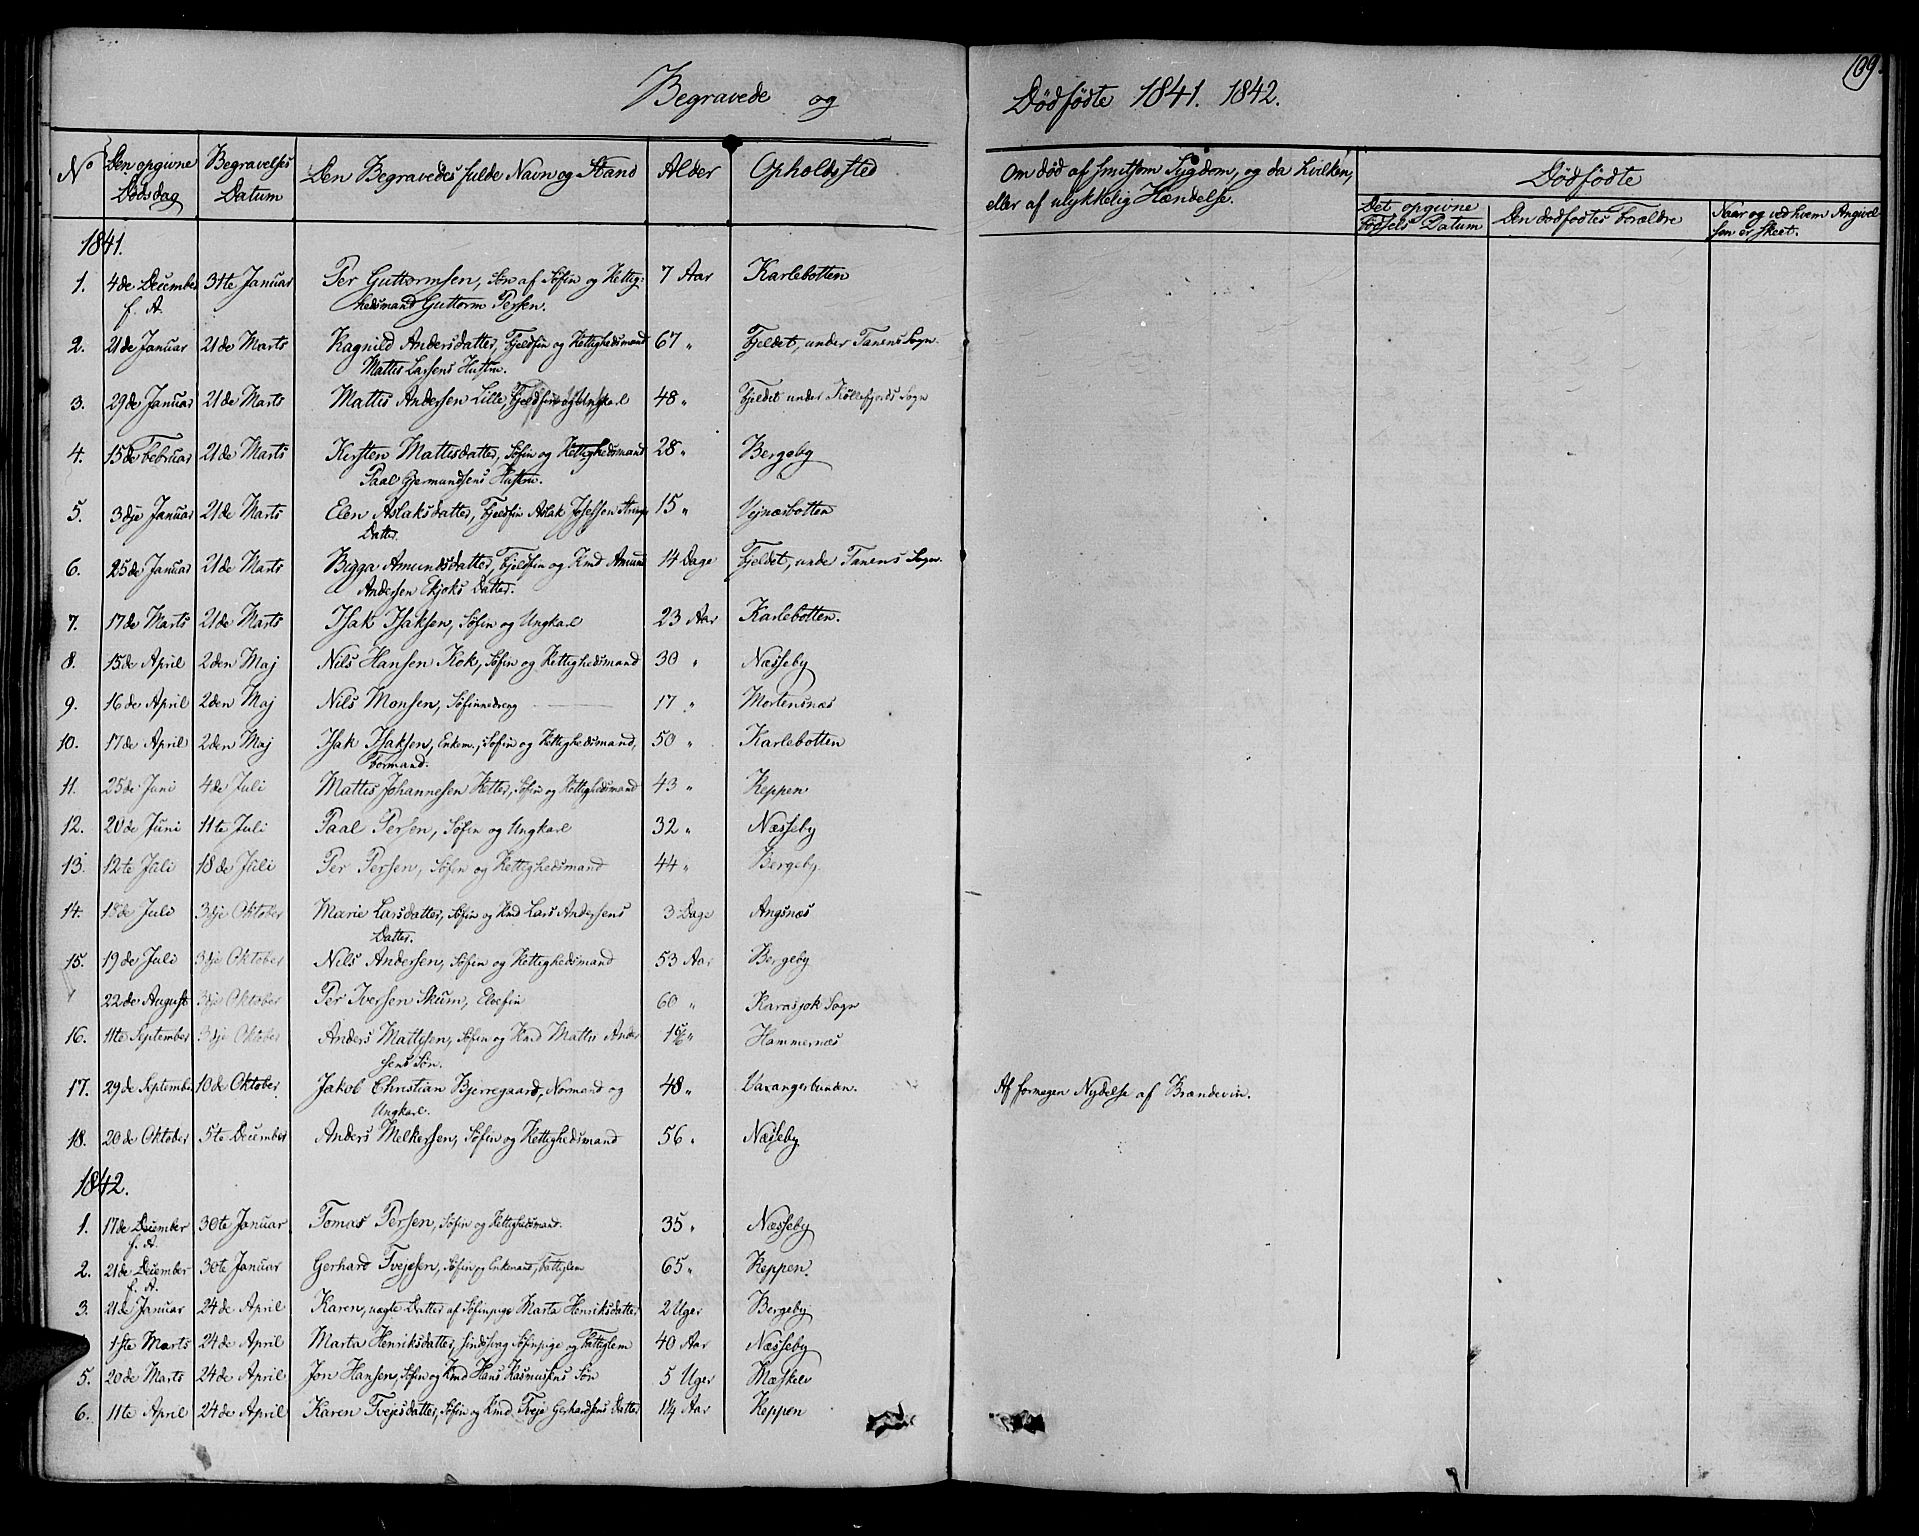 109.
Begravede og Dödfödte 1841. 1842.
No Den opgivne Dødsdag Begravelses Datum Den Begravedes fulde Navn og Stand Alder Opholdssted Om död af smitsom Sygdom, og da hvilken, eller af ulykkelig Hændelse. Dödfödte
Det opgivne Födsels Datum Den dödfödtes Forældre Naar og ved hvem Angivelsen er skeet.
1841.
1. 4de December 31te Januar Per Guttormsen, Sön af Söfin og Rettig- 7 Aar Karlebotten
f. A. hedsmand Guttorm Persen.
2. 21de Januar 21de Marts Ragnild Andersdatter, Fjeldfin og Rettighedsmand 67 " Fjeldet, under Tanens Sogn.
Mattis Larsens Hustru.
3. 29de Januar 21de Marts Mattis Andersen Lille, Fjeldfin og Ungkarl 48 " Fjeldet under Kollefjords Sogn
4. 15de Februar 21de Marts Kersten Mattisdatter, Söfin og Rettighedsmand 28 " Bergeby
Paal Gjermundsens Hustru.
5. 3dje Januar 21de Marts Elen Aslaksdatter, Fjeldfin Aslak Josefsen 15 " Vejnæsbotten
Datter.
6. 25de Januar 21de Marts Bigga Amundsdatter, Fjeldfin og Rmd Amund 14 Dage Fjeldet, unde Tanens Sogn.
Andersen Skjoks Datter.
7. 17de Marts 21de Marts Isak Isaksen, Söfin og Ungkarl 23 Aar Karlebotten.
8. 15de April 2den Maj Nils Hansen Kok, Söfin og Rettighedsmand 30 " Næsseby
9. 16de April 2den Maj Nils Monsen, Söfinnedreng 17 " Mortensnæs
10. 17de April 2den Maj Isak Isaksen, Enkem., Söfin og Rettighedsmand, 50 " Karlebotten
Formand.
11. 25de Juni 4de Juli Mattis Johannesen Retter, Söfin og Rettighedsmand 43 " Reppen
12. 20de Juni 11te Juli Paal Persen, Söfin og Ungkarl 32 " Næsseby
13. 12te Juli 18de Juli Per Persen, Söfin og Rettighedsmand 44 " Bergeby.
14. 15de Juli 3dje Oktober Marie Larsdatter, Söfin og Rmd Lars Andersens 3 Dage Angsnæs
Datter.
15. 19de Juli 3dje Oktober Nils Andersen, Söfin og Rettighedsmand 53 Aar Bergeby
22de August 3dje Oktober Per Iversen Skum, Elvefin 60 " Karasjok Sogn
16. 11te September 3dje Oktober Anders Mattisen, Söfin og Rmd Mattis Ander " Hammernæs
sens Sön.
17. 29de September 10de Oktober. Jakob Christian Bjerregaard, Normand og 48 " Varangerbunden. Af formegen Nydelse af Brændeviin.
Ungkarl.
18. 20de Oktober 5te December Anders Melkersen, Söfin og Rettighedsmand 56 " Næsseby
1842.
1. 17de December 30te Januar Tomas Persen, Söfin og Rettighedsmand. 35 " Næsseby
f. A.
2. 21de December 30te Januar Gerhard Tvejesen, Söfin og Enkemand, Fattiglem 65 " Reppen.
f. A.
3. 21de Januar 24de April Karen, uægte Datter af Söfinpige Marta Henriksdatter 2 Uger Bergeby
1ste Marts 24de April Marta Henriksdatter, sindssvag Söfinpige og Fattiglem 40 Aar Næsseby
5. 20de Marts 24de April Jon Hansen, Söfin og Rmd Hans Rasmusens Sön 5 Uger Mæskelv
6. 11te April 24de April Karen Tvejesdatter, Söfin og Rmd Tveje Gerhardsens Datter 1¼ Aar Reppen